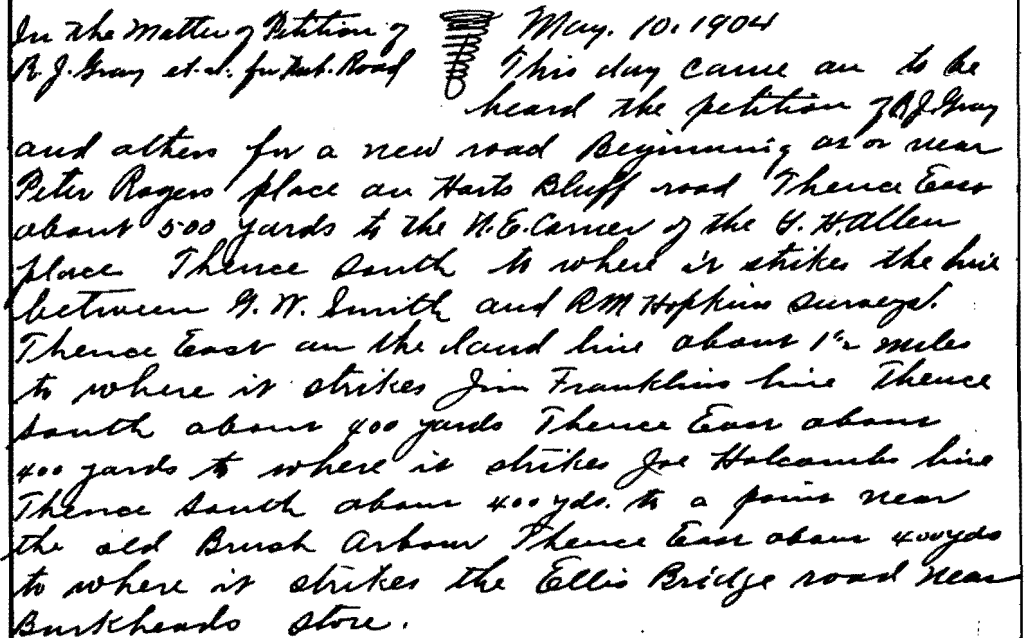 In the Matter of Petition of
R. J. Gray et. al. for Pub. Road
May. 10. 1904
This day came on to be
heard the petition of R J. Gray
and others for a new road Beginning at or near
Peter Rogers place on Harts Bluff road Thence East
about 500 yards to the N. E. Corner of the Y. H. Allen
place Thence South to where it strikes the line
between G. W. Smith and R M Hopkins surveys.
Thence East on the land line about 1½ miles
to where it strikes Jim Franklins line Thence
South about 400 yards Thence East about
400 yards to where it strikes Joe Holcombs line
Thence South about 400 yds. to a point near
the old Brush Arbour Thence East about 400 yds
to where it strikes the Ellis Bridge road near
Burkheads store.